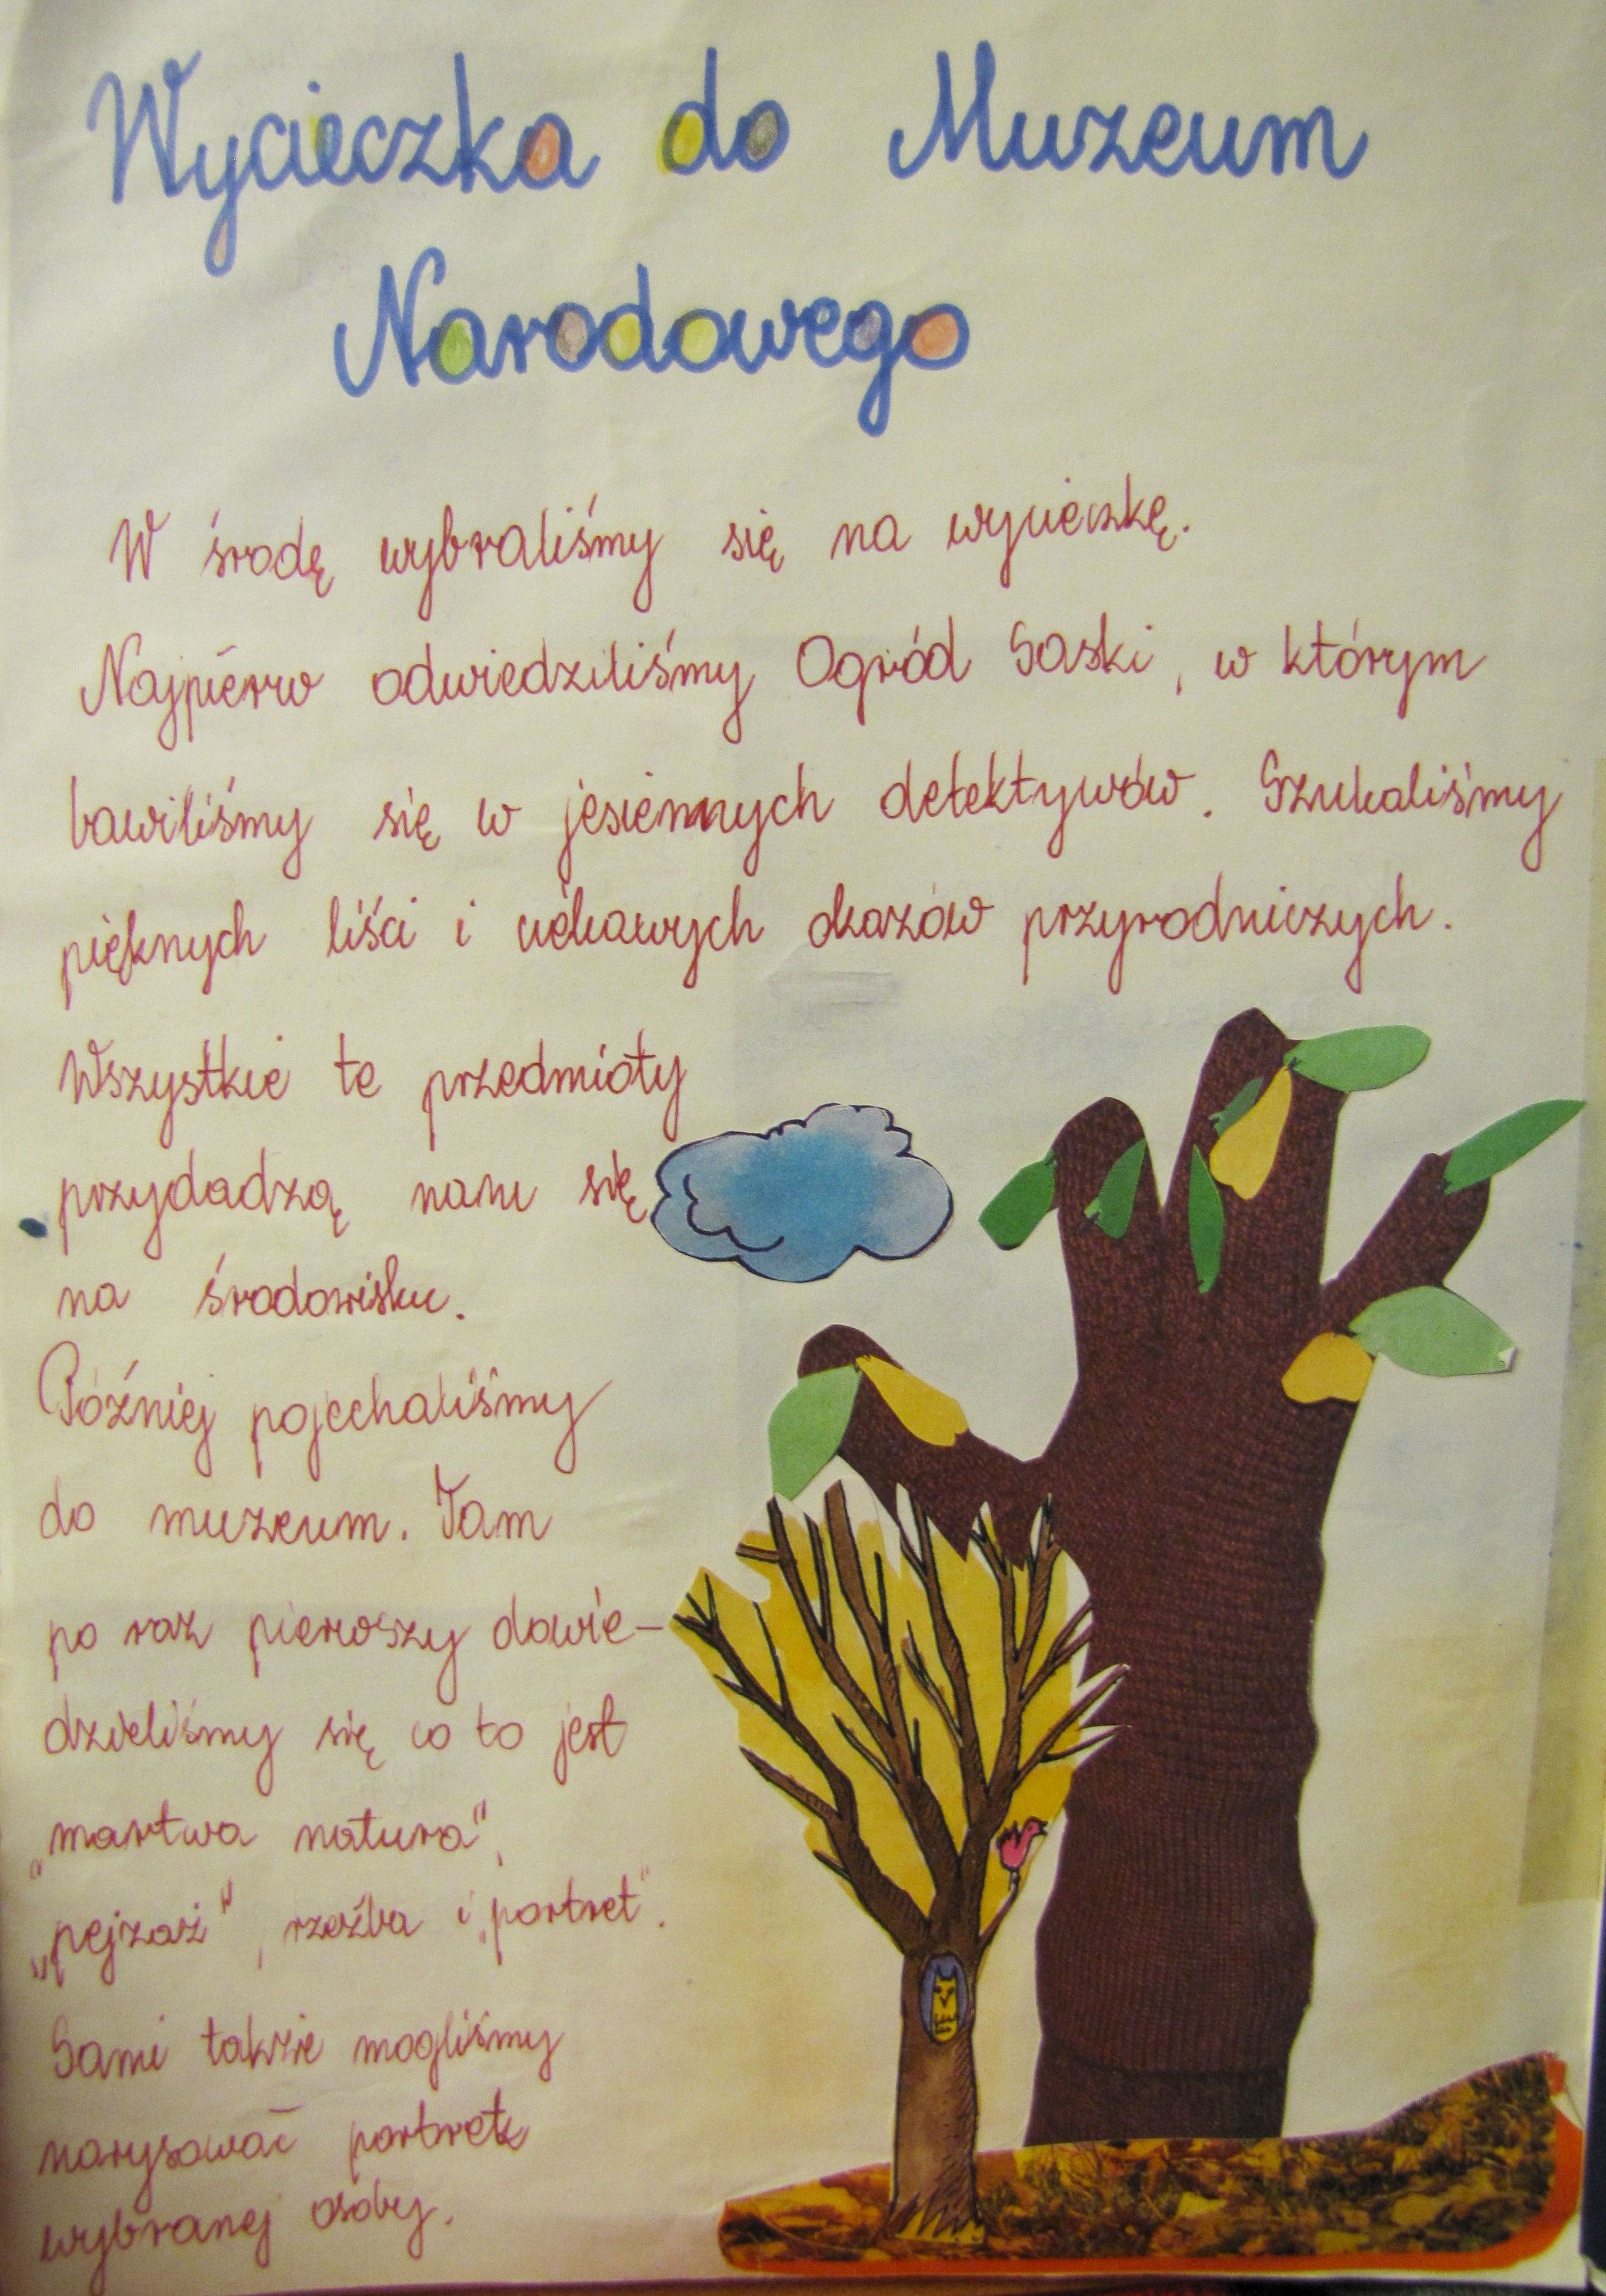 Wycieczka do Muzeum
Narodowego
W środę wybraliśmy się na wycieczkę.
Najpierw odwiedziliśmy Ogród Saski, w którym
bawiliśmy się w jesiennych detektywów. Szukaliśmy
pięknych liści i ciekawych okazów przyrodniczych.
Wszystkie te przedmioty
przydadzą nam się
na środowisku.
Później pojechaliśmy
do muzeum. Tam
po raz pierwszy dowie-
dzieliśmy się co to jest
„martwa natura”,
„pejzaż”, rzeźba i „portret”.
Sami także mogliśmy
narysować portret
wybranej osoby.